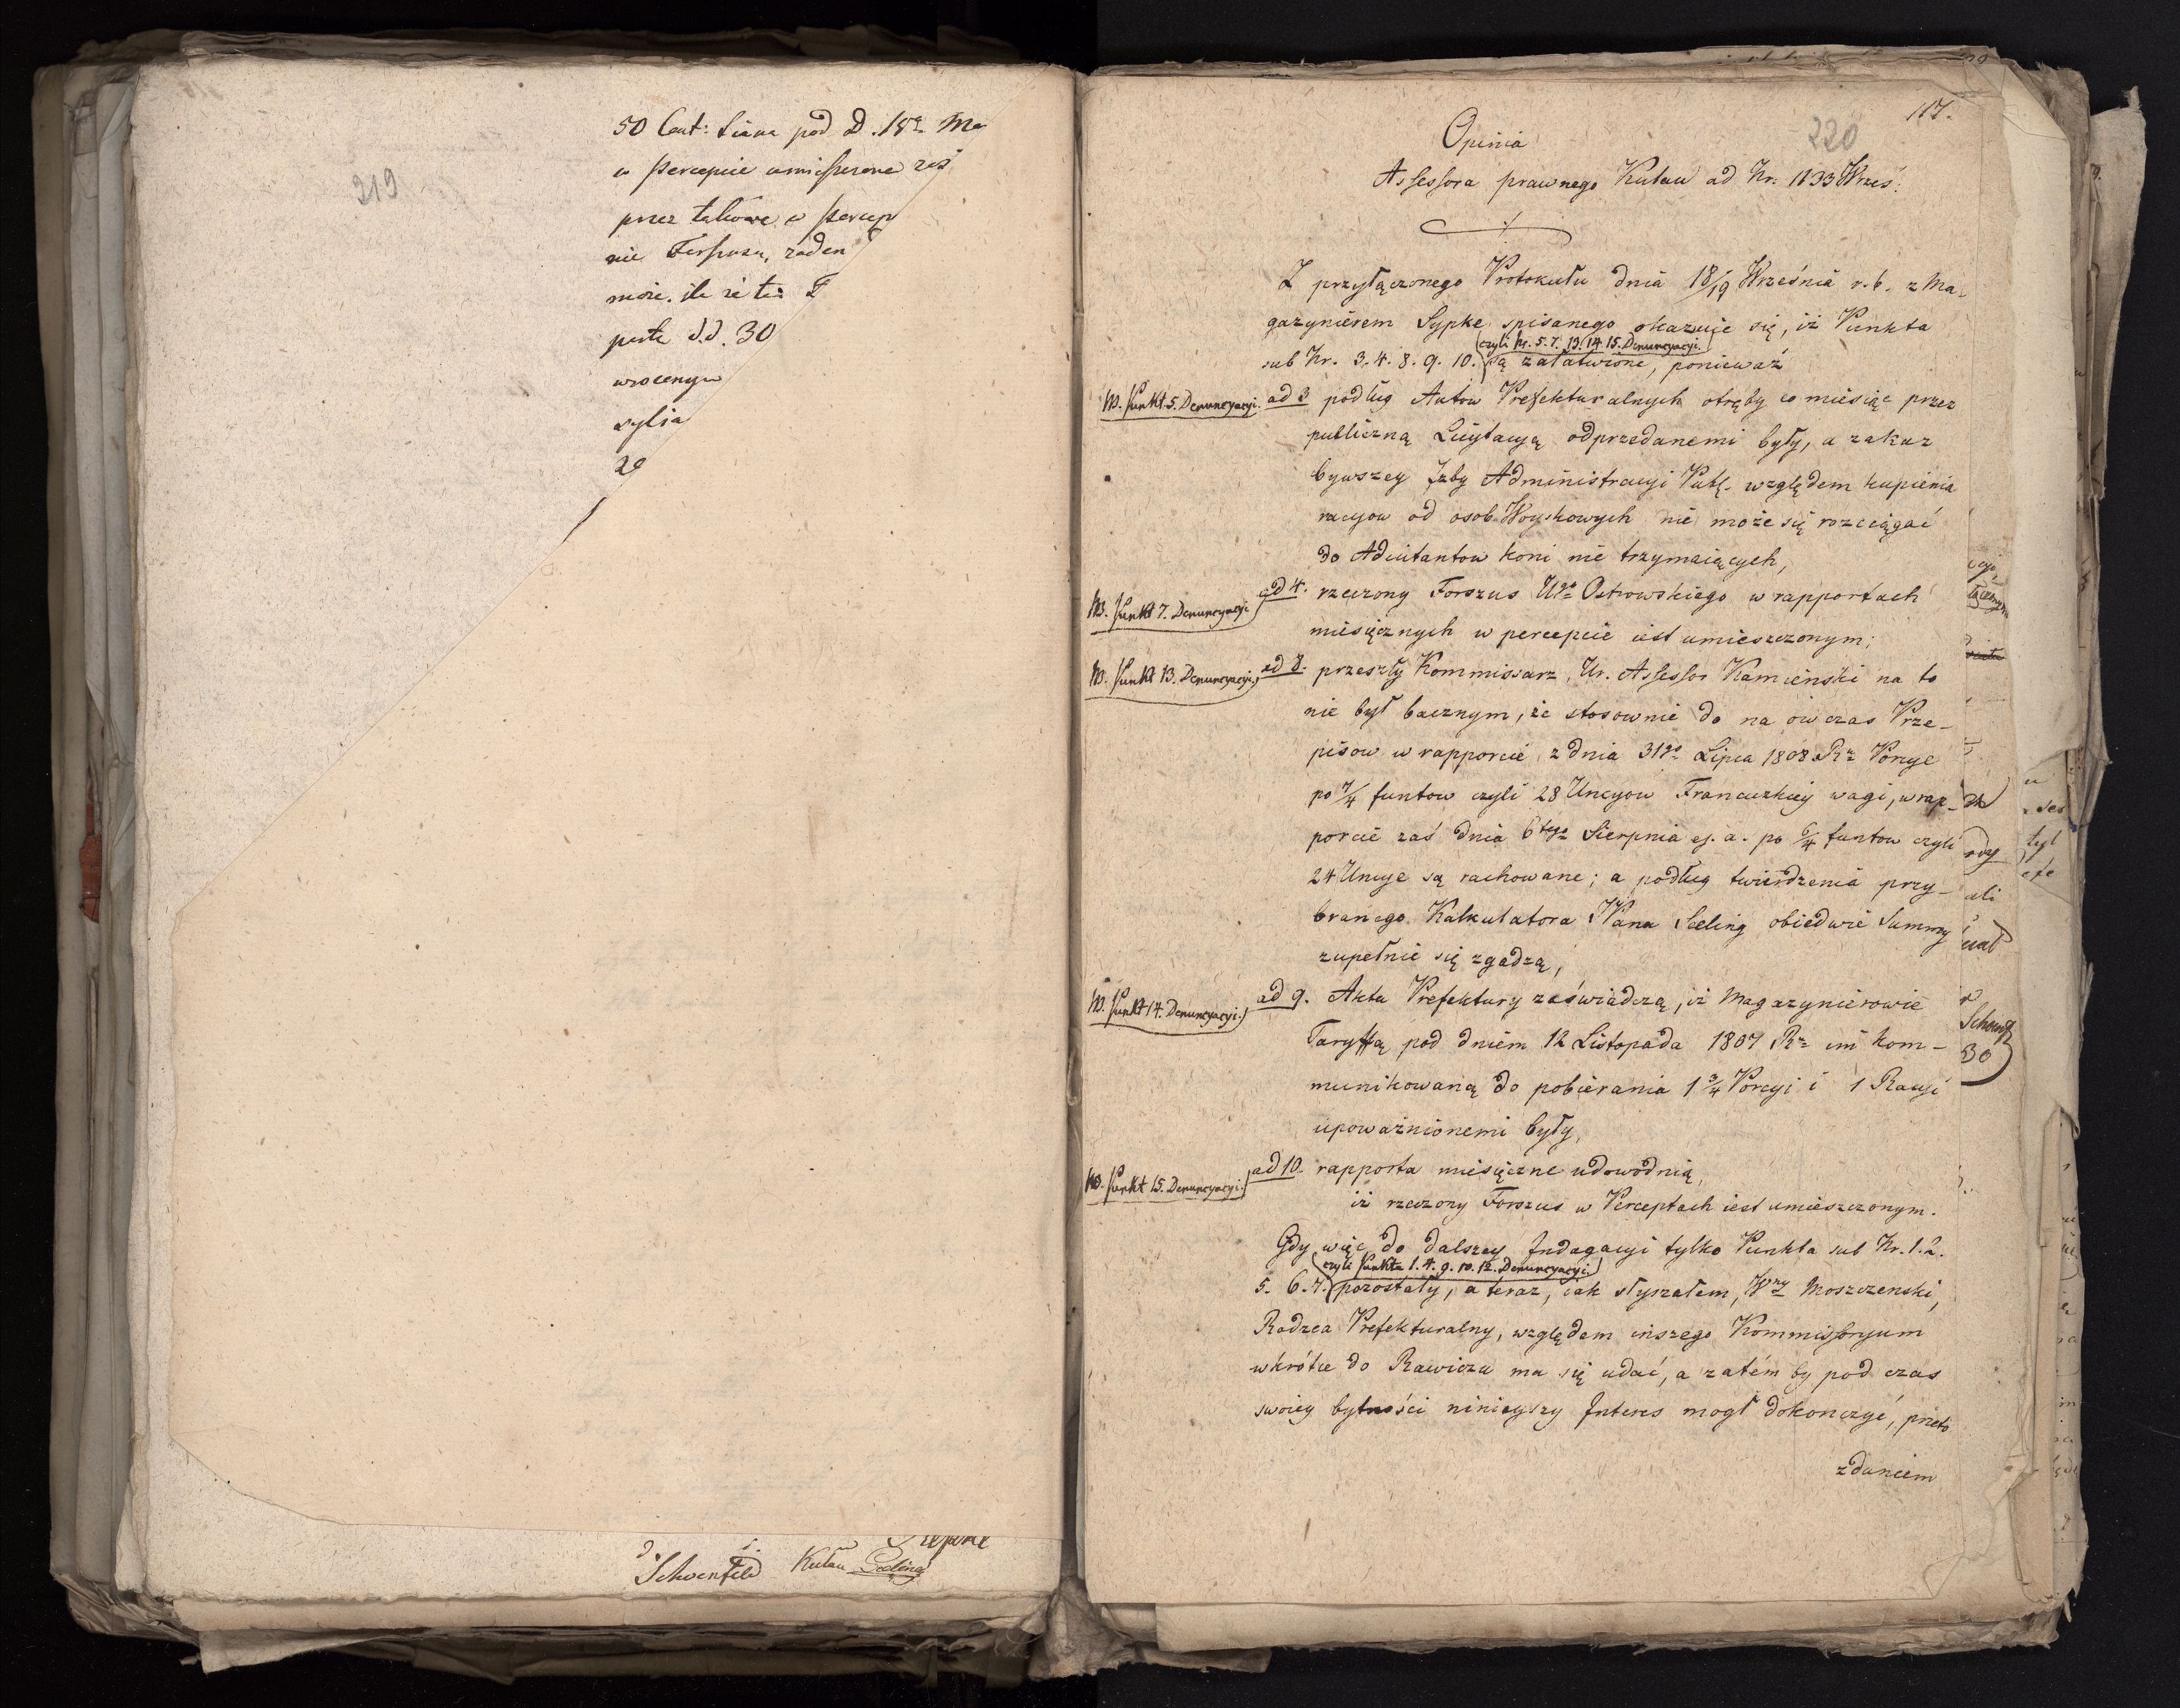 219
50 Cent: Siana pod d. 18ᵒ Ma
w Percepcie umieszczone zos
przez takowe w Percep
nie Forszusu, żaden
może. ile że też
d.d. 30
20
Schoenfeld Kutau Seeling
117.
220
Opinia
Assessora prawnego Kutau ad Nr. 1133 Wrześ:
Z przyłączonego Protokułu dnia 18/19 Września r. b. z Ma-
gazynierem Sypke spisanego okazuie się, iż Punkta
(czyli Nr. 5. 7. 13. 14. 15. Denuncyacyi.)
sub Nr. 3. 4. 8. 9. 10. są załatwione, ponieważ
NB. Punkt 5. Denuncyacyi. ad 3 podług Aktow Prefekturalnych otręby co miesiąc przez
publiczną Licytacyą odprzedanemi były, a zakaz
bywszey Izby Administracyi Publ. względem kupienia
racyow od osob Woyskowych nie może się rozciągać
do Adiutantow koni nie trzymaiących,
NB. Punkt 7. Denuncyacyi ad 4. rzeczony Forszus Ugo Ostrowskiego w rapportach
miesięcznych w percepcie iest umieszczonym;
NB. Punkt 13. Denuncyacyi. ad 8. przeszły Kommissarz, Ur. Assessor Kamieński na to
nie był bacznym, że stosownie do na ow czas Prze-
pisow w rapporcie z dnia 31go Lipca 1808 Rr Porcye
po 7/4 funtow czyli 28 Uncyow Francuzkiey wagi, w rap-
porcie zaś dnia 6tego Sierpnia ej. a. po 6/4 funtow czyli
24 Uncye są rachowane; a podług twierdzenia przy-
branego Kalkulatora Pana Seeling obiedwie Summy
zupełnie się zgadzą,
NB. Punkt 14. Denuncyacyi. ad 9. Akta Prefektury zaświadczą, iż Magazynierowie
Taryffą pod dniem 12 Listopada 1807 Rr im kom-
munikowaną do pobierania 1 3/4 Porcyi i 1 Racyi
upoważnionemi były,
NB. Punkt 15. Denuncyacyi. ad 10. rapporta miesięczne udowodnią,
iż rzeczony Forszus w Perceptach iest umieszczonym.
Gdy więc do dalszey Indagacyi tylko Punkta sub Nr. 1. 2.
(czyli Punkta 1. 4. 9. 10. 12. Denuncyacyi.)
5. 6. 7. pozostały, a teraz, iak słyszałem, Wny Moszczenski,
Radzca Prefekturalny, względem inszego Kommissoryum
wkrótce do Rawicza ma się udać, a zatém by pod czas
swoiey bytności ninieyszy Interes mogł dokonczyć, przeto
zdaniem